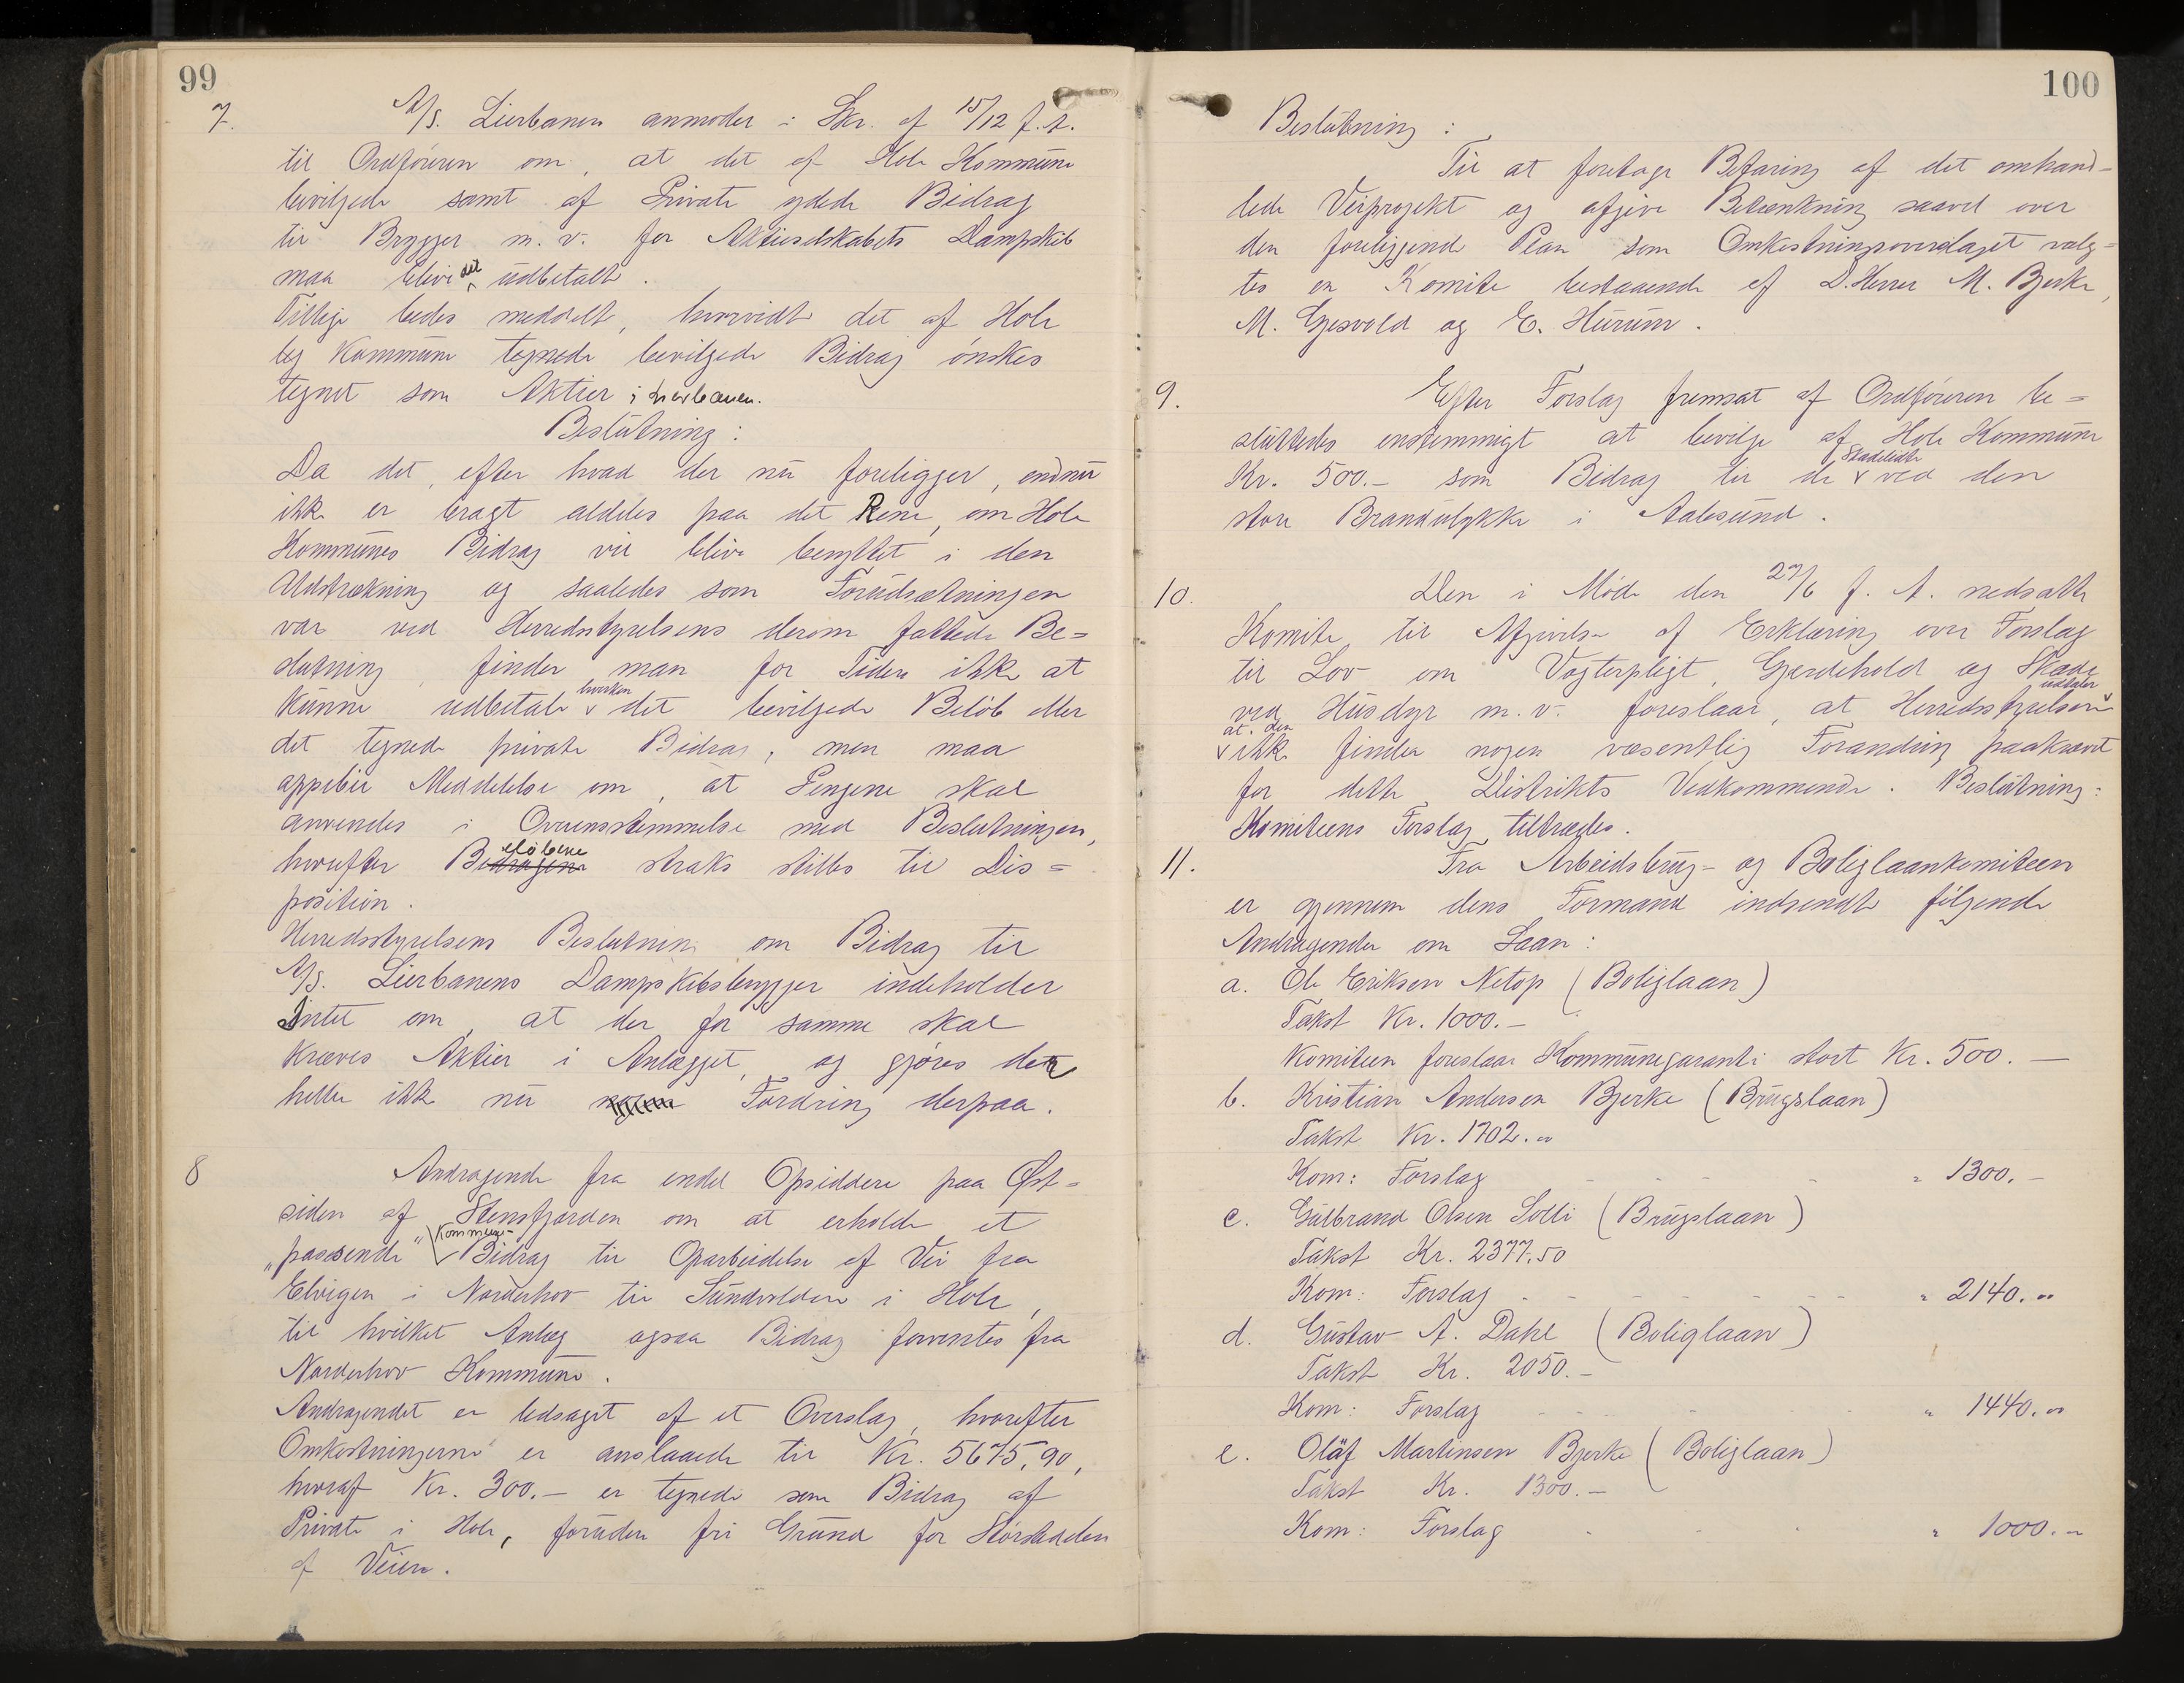 99
7. A/S. Lierbanen anmoder i Skr. af 15/12 f. A.
til Ordføreren om, at det af Hole Kommune
bevilgede samt af Private ydede Bidrag
til Brygger m. v. for Aktieselskabets Dampskib
maa blive det udbetalt.
Tillige bedes meddelt, hvorvidt det af Hole
Kommune tegnede bevilgede Bidrag ønskes
tegnet som Aktier i Lierbanen.
Beslutning:
Da det, efter hvad der nu foreligger, endnu
ikke er bragt aldeles paa det Rene, om Hole
Kommunes Bidrag vil blive benyttet i den
Udstrækning og saaledes som Forudsætningen
var ved Herredsstyrelsens derom fattede Be=
slutning, finder man for Tiden ikke at
kunne udbetale hverken det bevilgede Beløb eller
det tegnede private Bidrag, men maa
appebie Meddelelse om, at Pengene skal
anvendes i Overensstemmelse med Beslutningen,
hvorefter Beløbene straks stilles til Dis=
position.
Herredsstyrelsens Beslutning om Bidrag til
A/S. Lierbanens Dampskibsbrygger indeholder
Intet om, at der for samme skal
kræves Aktier i Anlægget, og gjøres der
heller ikke nu Fordring derpaa.
8 Andragende fra endel Opsiddere paa Øst=
siden af Stensfjorden om at erholde et
"passende" Kommune- Bidrag til Oparbeidelse af Vei fra
Elvigen i Norderhov til Sundvolden i Hole,
til hvilket Anlæg ogsaa Bidrag forventes fra
Norderhov Kommune.
Andragendet er ledsaget af et Overslag, hvorefter
Omkostningerne er anslaaede til Kr. 5675,90,
hvoraf Kr. 300.- er tegnede som Bidrag af
Private i Hole, foruden fri Grund for Størstedelen
af Veien.
100
Beslutning:
Til at foretage Befaring af det omhand=
lede Veiprojekt og afgive Betænkning saavel over
den foreliggende Plan som Omkostningsoverslaget valg=
tes en Komite bestaaende af D'Herrer M. Bjerke,
M. Gjesvold og E. Hurum.
9. Efter Forslag fremsat af Ordføreren be=
sluttedes enstemmigt at bevilge af Hole Kommune
Kr. 500.- som Bidrag til de Skadelidte ved den
store Brandulykke i Aalesund.
10. Den i Møde den 27/6 f. A. nedsatte
Komite til Afgivelse af Erklæring over Forslag
til Lov om Vogterpligt, Gjerdehold og Skade
ved Husdyr m. v. foreslaar, at Herredsstyrelsen udtaler
at den ikke finder nogen væsentlig Forandring paakrævet
for dette Distrikts Vedkommende. Beslutning:
Komiteens Forslag tiltrædes.
11. Fra Arbeidsbrug- og Boliglaankomiteen
er gjennem dens Formand indsendt følgende
Andragender om Laan:
a. Ole Eriksen Netop (Boliglaan)
Takst Kr. 1000.-
Komiteen foreslaar Kommunegaranti stort Kr. 500.-
b. Kristian Andersen Bjerke (Brugslaan)
Takst Kr. 1702.00
Kom: Forslag - - - - " 1300.-
c. Gulbrand Olsen Solli (Brugslaan)
Takst Kr. 2377.50
Kom: Forslag - - - - - - " 2140.00
d. Gustav A. Dahl (Boliglaan)
Takst Kr. 2050.-
Kom: Forslag - - - - " 1440.00
e. Olaf Martinsen Bjerke (Boliglaan)
Takst Kr. 1300.-
Kom: Forslag - - - " 1000.-